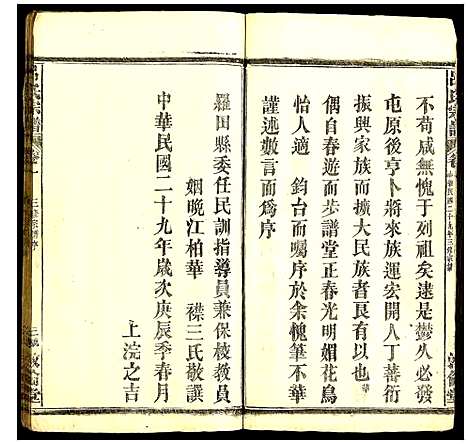 不苟咸無愧于列祖矣遠是鬱久必發
屯原後亨卜將來族運宏開人丁蕃衍
振興家族而擴大民族者良有以也華
偶自春遊而步譜堂正春光明媚花鳥
怡人適　鈞台而囑序於余愧筆不華
謹述數言而為序
羅田縣委任民訓指導員兼保校教員
姻晚江柏華　襟三氏敬撰
中華民國二十九年歲次庚辰季春月
上浣之吉
呂氏宗譜
卷一